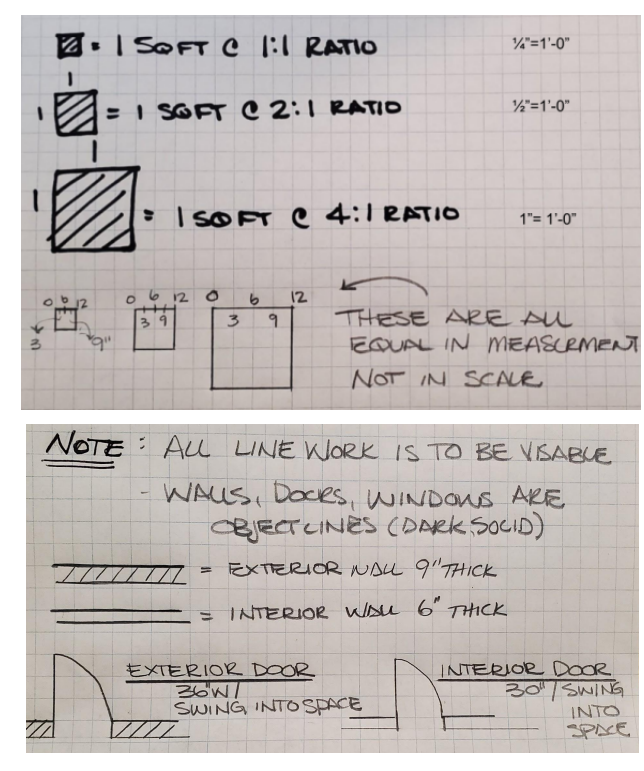 = 1 SQFT @ 1:1 RATIO
¼"=1'-0"
1
1 = 1 SQFT @ 2:1 RATIO
½"=1'-0"
1
1 = 1 SQFT @ 4:1 RATIO
1"= 1'-0"
0 6 12
3 9"
0 6 12
3 9
0 6 12
3 9
THESE ARE ALL
EQUAL IN MEASURMENT
NOT IN SCALE
NOTE : ALL LINE WORK IS TO BE VISABLE
- WALLS, DOORS, WINDOWS ARE
OBJECT LINES (DARK, SOLID)
= EXTERIOR WALL 9" THICK
= INTERIOR WALL 6" THICK
EXTERIOR DOOR
36"W/
SWING INTO SPACE
INTERIOR DOOR
30"/SWING
INTO
SPACE